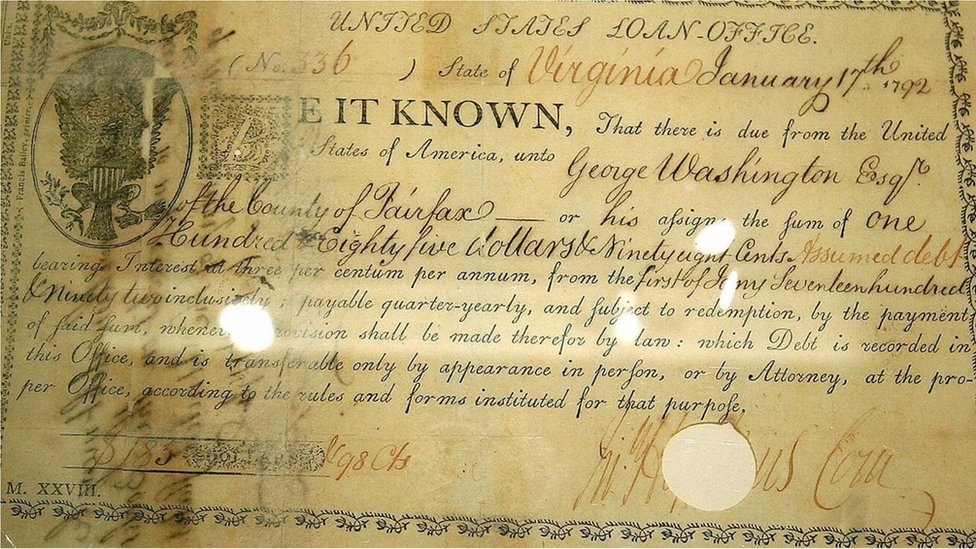 UNITED STATES LOAN-OFFICE.
(No. 336 ) State of Virginia January 17th 1792
BE IT KNOWN, That there is due from the United
States of America, unto George Washington Esqr.
of the County of Fairfax — or his assigns the sum of one
Hundred & Eighty five dollars & Ninety eight Cents Assumed debt
bearing Interest at three per centum per annum, from the first of Jany Seventeen hundred
& Ninety two inclusively, payable quarter-yearly, and subject to redemption, by the payment
of said sum, whenever provision shall be made therefor by law: which Debt is recorded in
this Office, and is transferable only by appearance in person, or by Attorney, at the pro-
per Office, according to the rules and forms instituted for that purpose.
$ 185 DOLLARS & 98 Cts
M. XXVIII.
Francis Bailey, Printer